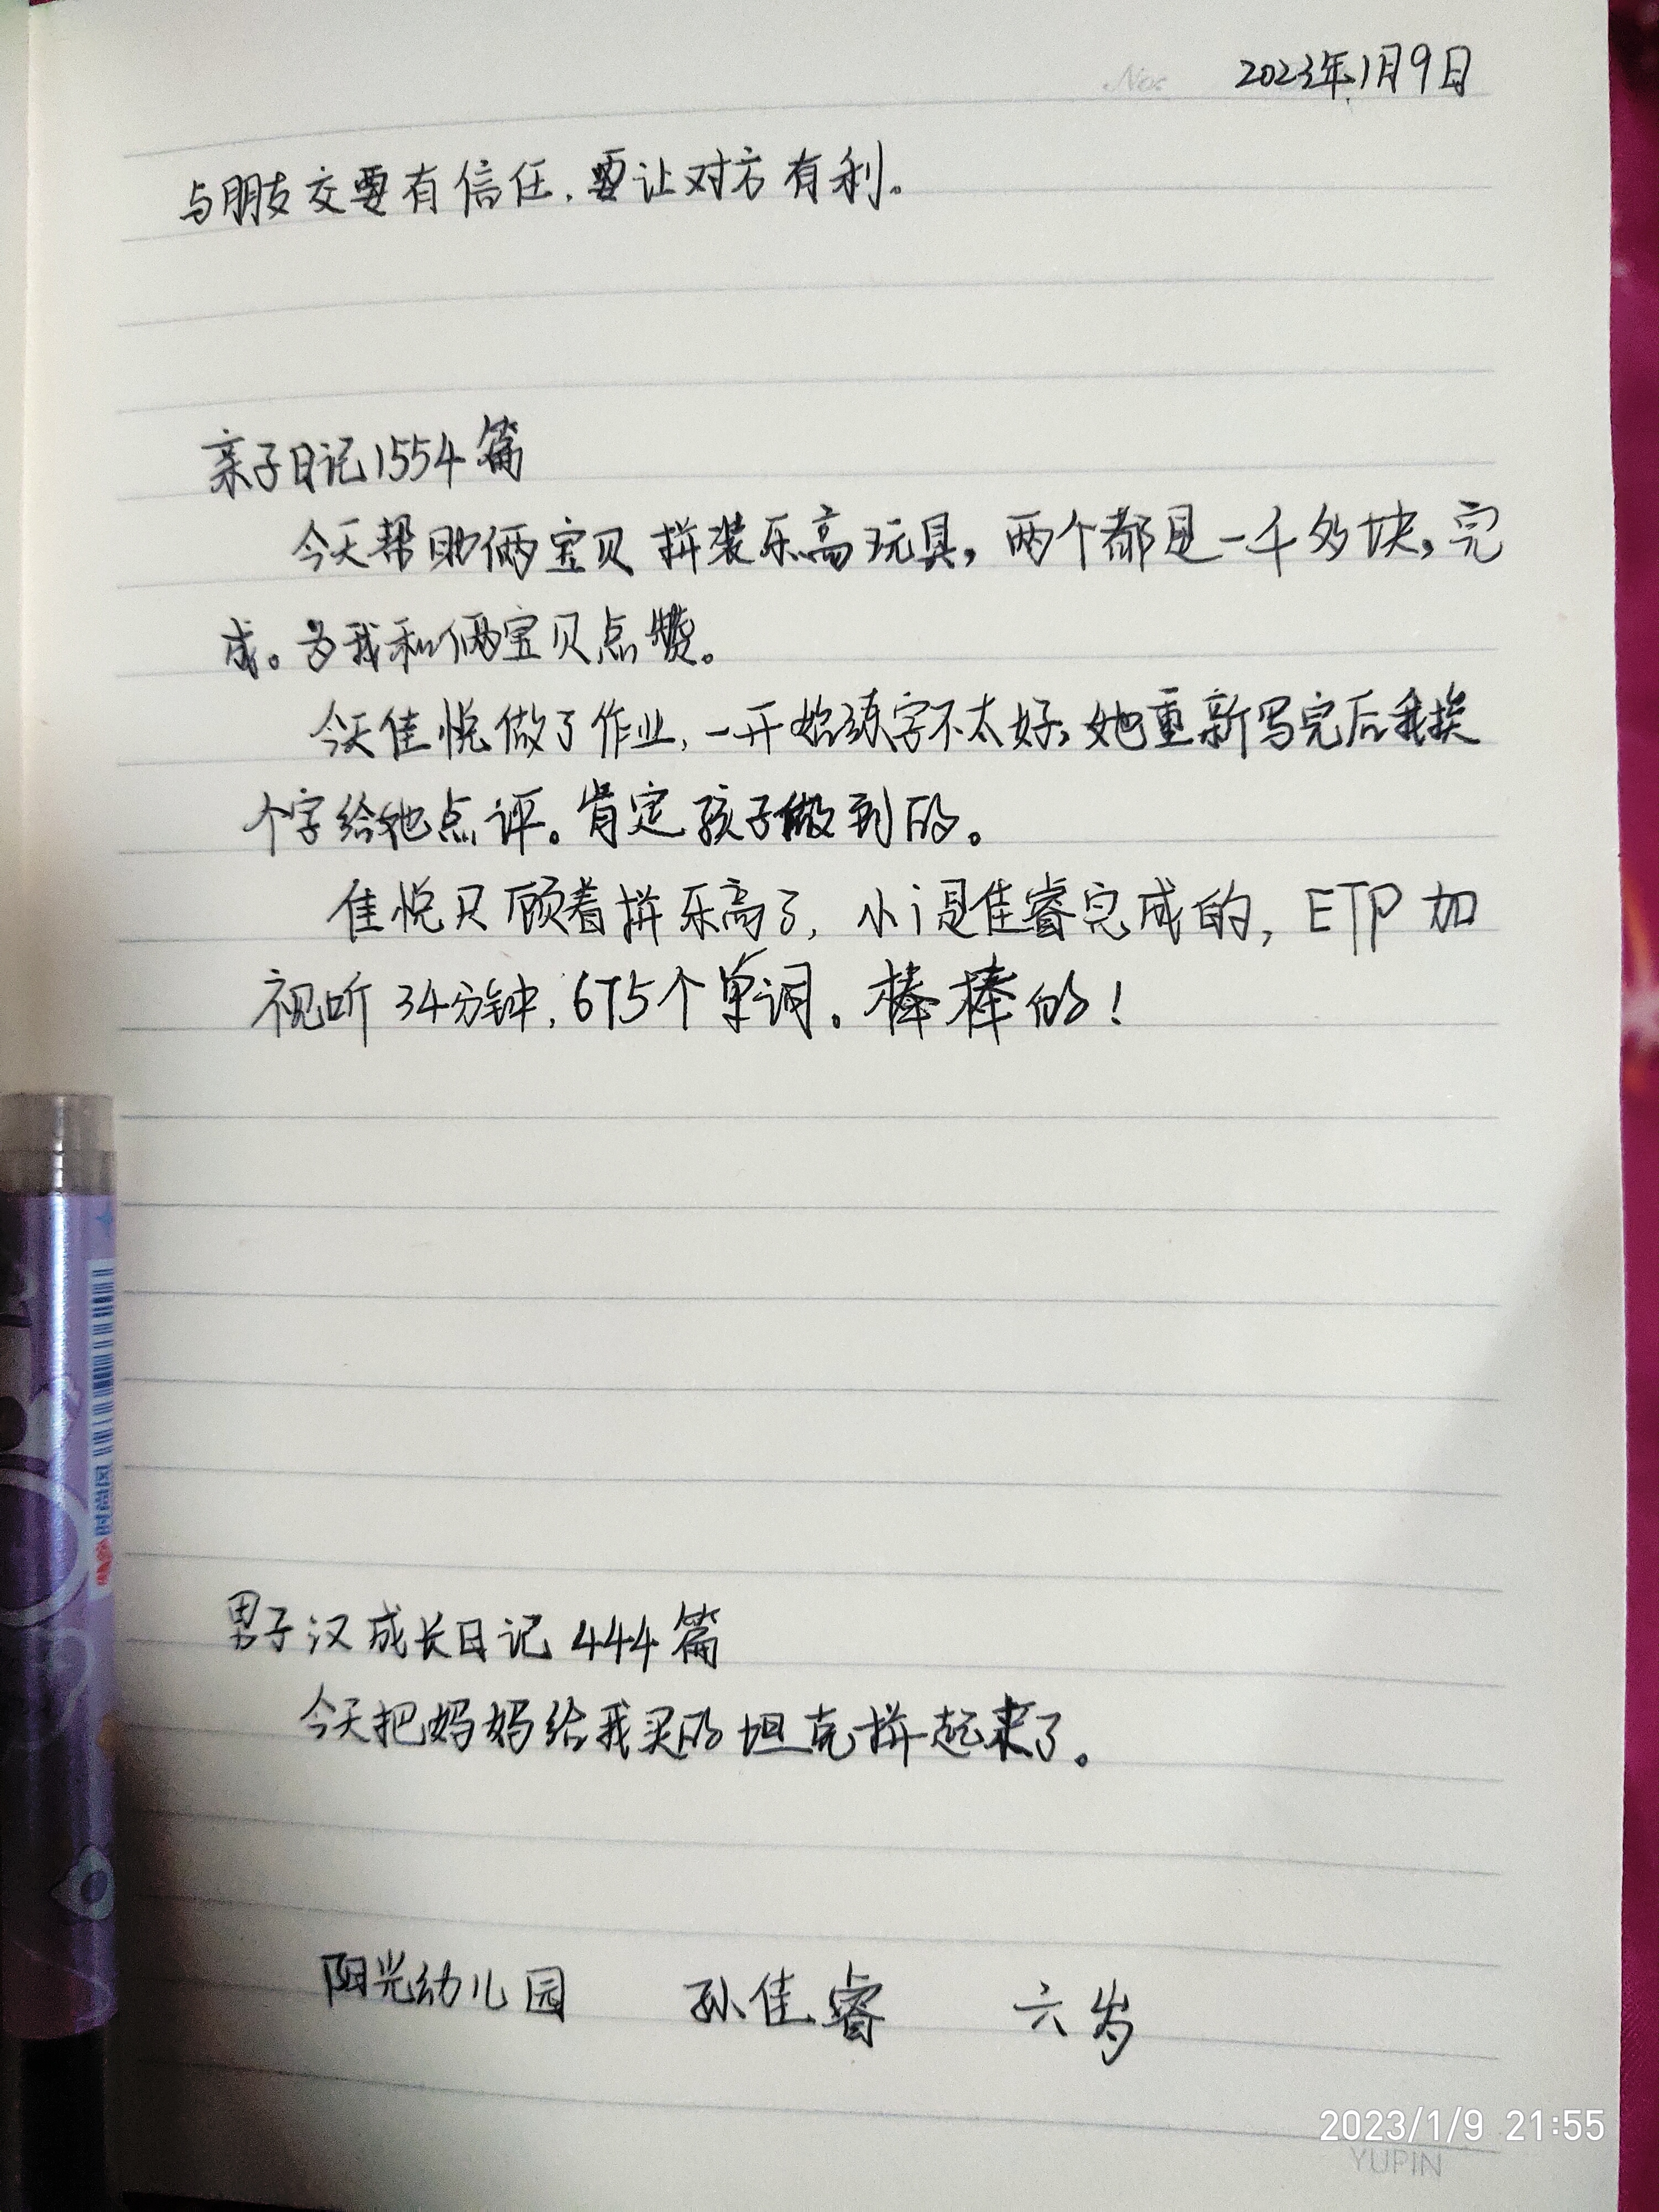 No:
2023年1月9日
与朋友交要有信任，要让对方有利。
亲子日记1554篇
今天帮助俩宝贝拼装乐高玩具，两个都是一千多块，完
成。为我和俩宝贝点赞。
今天佳悦做了作业，一开始练字不太好，她重新写完后我挨
个字给她点评。肯定孩子做到的。
佳悦只顾着拼乐高了，小i是佳睿完成的，ETP加
视听34分钟，675个单词。棒棒的！
男子汉成长日记444篇
今天把妈妈给我买的坦克拼起来了。
阳光幼儿园 孙佳睿 六岁
2023/1/9 21:55
YUPIN
时尚风